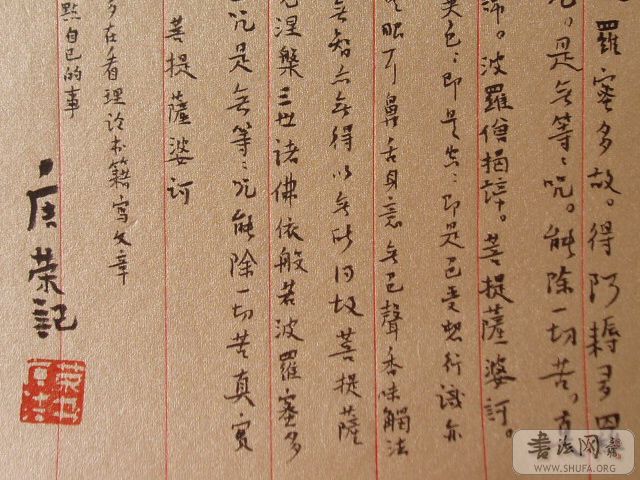 羅蜜多故。得阿耨多
咒。是無等〻咒。能除一切苦。真
諦。波羅僧揭諦。菩提薩婆訶。
色〻即是空〻即是色受想行識亦
眼耳鼻舌身意無色聲香味觸法
無智亦無得以無所得故菩提薩
涅槃三世諸佛依般若波羅蜜多
咒是無等〻咒能除一切苦真實
菩提薩婆訶
多在看理論書籍寫文章
點自己的事
榮記
書法网
WWW.SHUFA.ORG